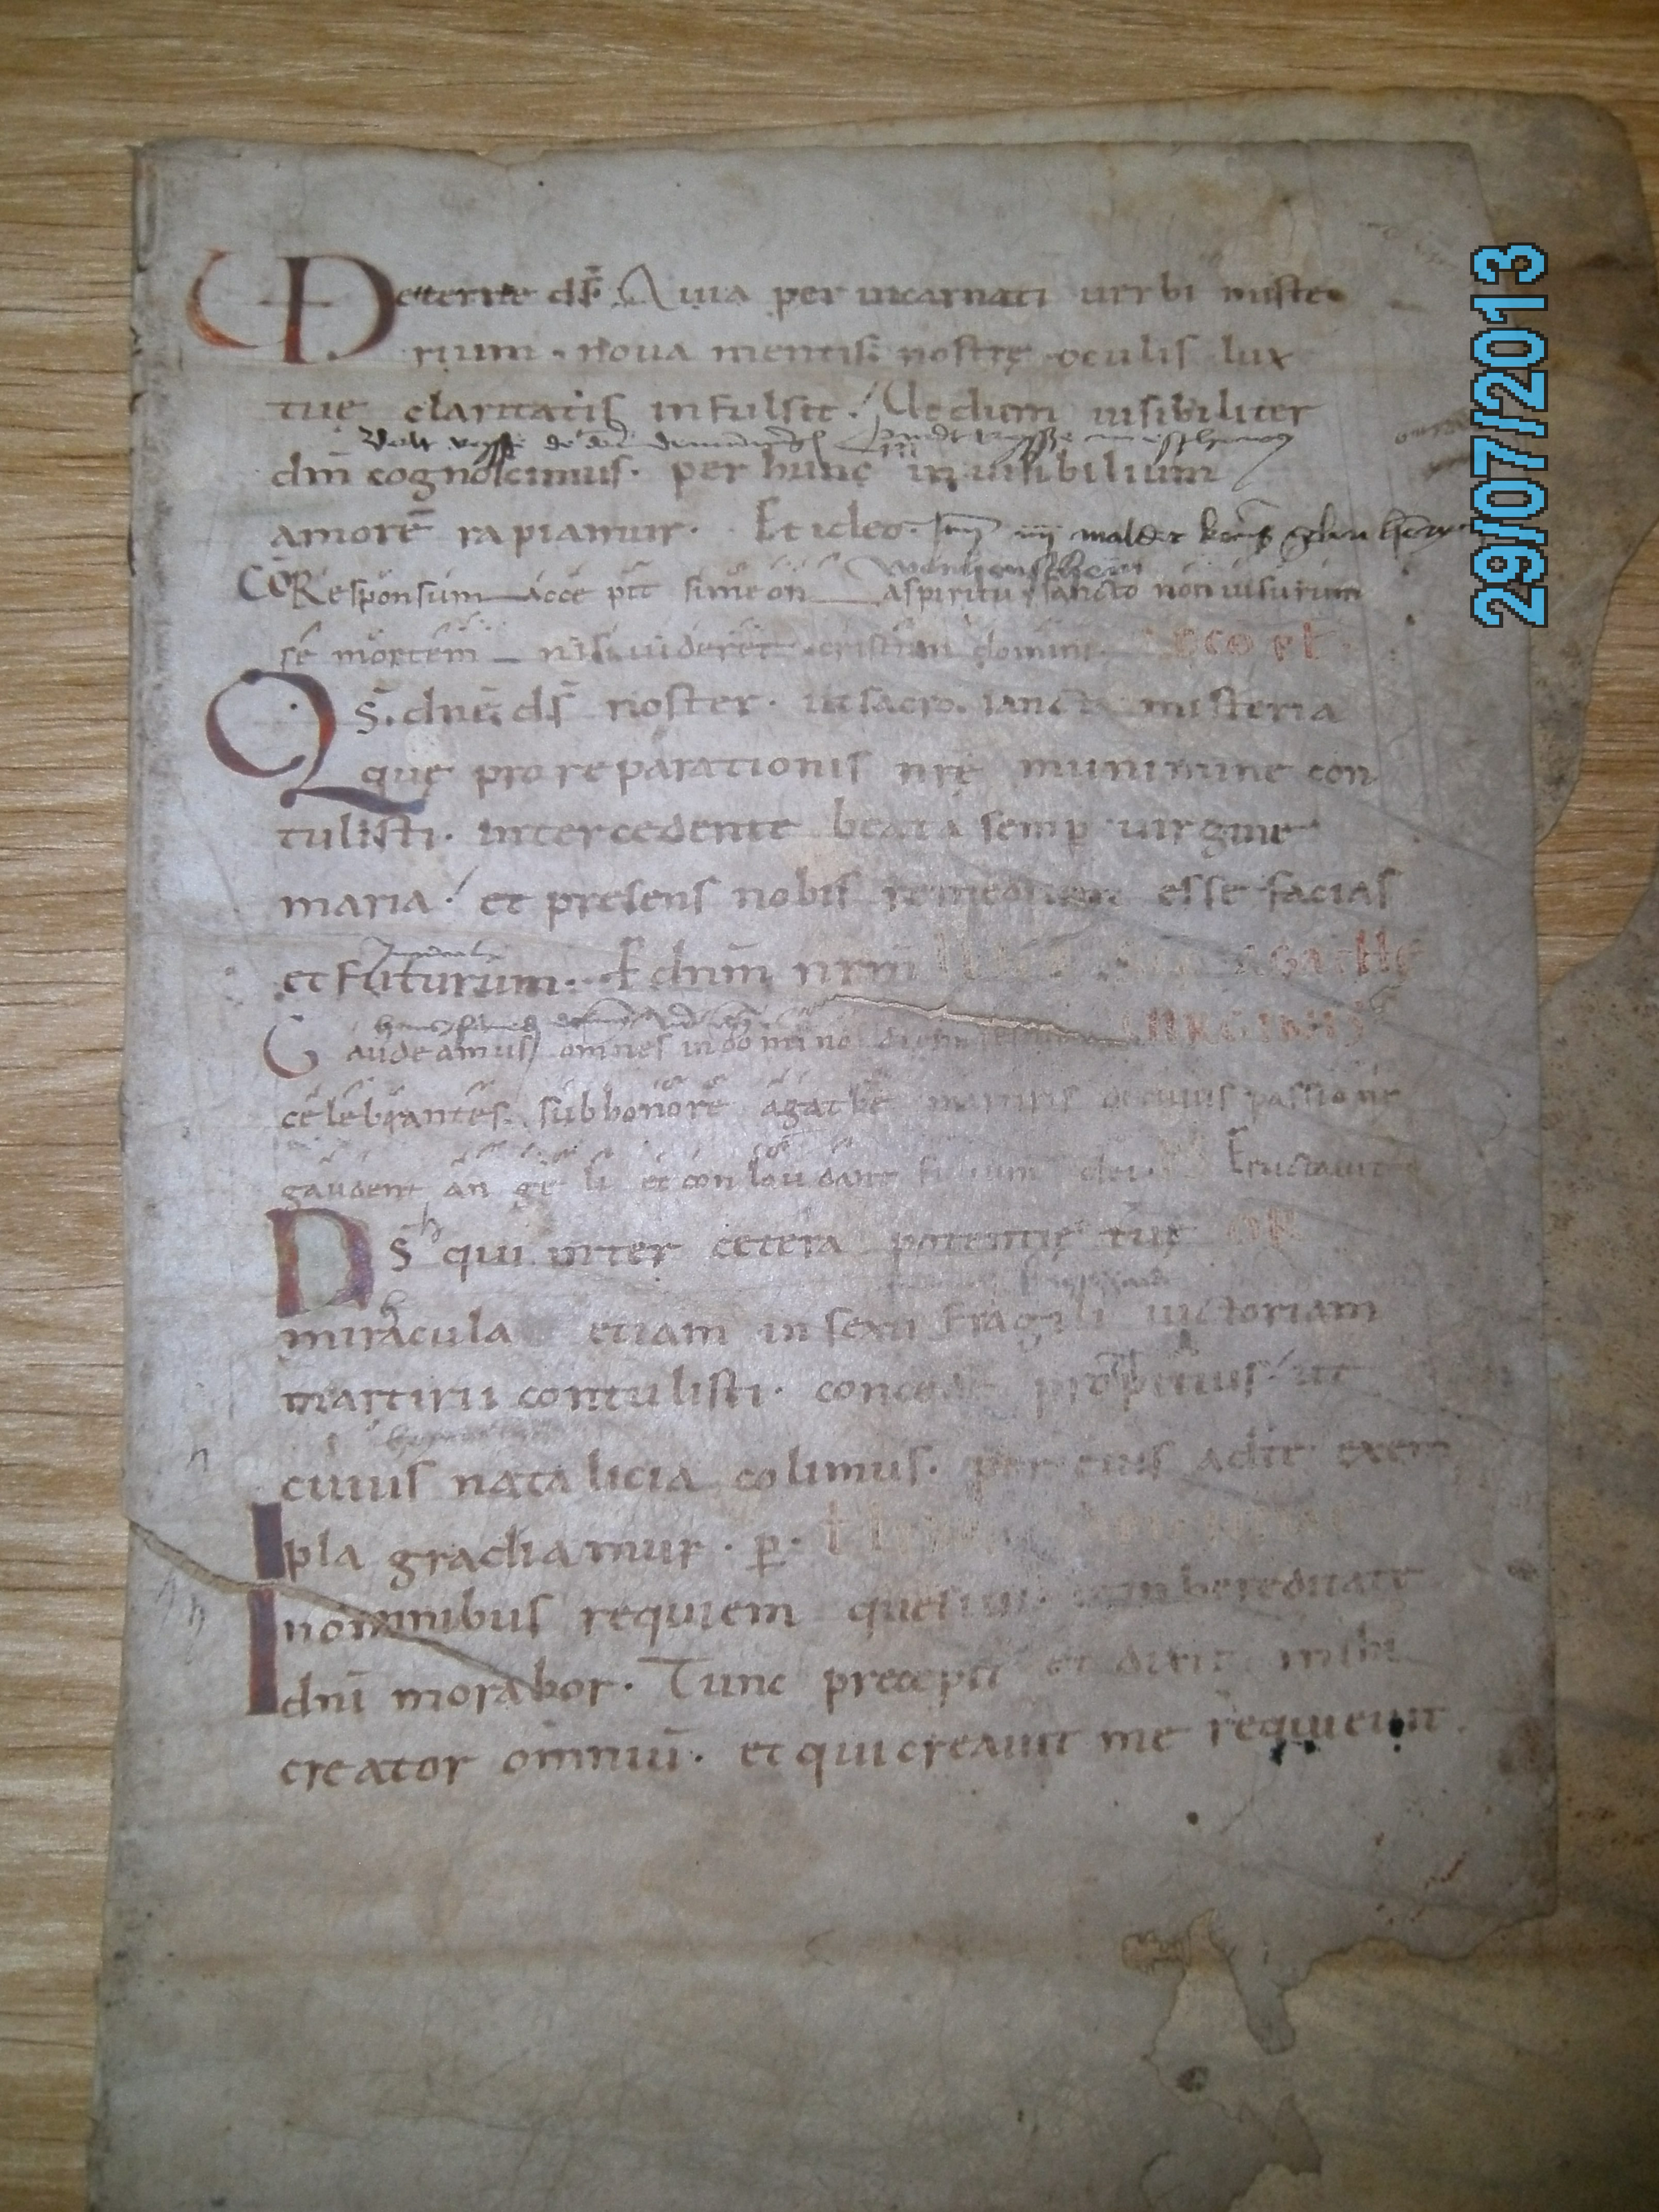 eterne ds̄. Quia per incarnati uerbi miste
rium. noua mentis nostrę oculis lux
tuę claritatis infulsit. Ut dum uisibiliter
dm̄ cognoscimus. per hunc in uisibilium
amorē rapiamur. Et ideo. iiij malder
CŌ Responsum acce pit simeon a spiritu sancto non uisurum
se mortem nisi uideret cristum domini. AD CO PL
Qs̄. dnē. ds̄ noster. ut sacro sancta misteria
quę pro reparationis nrę munimine con
tulisti. intercedente beata semp uirgine
maria. et presens nobis remedium esse facias
et futurum. P dnm̄ nrm̄ AGATHE
Gaudeamus omnes in domino diem festum UIRGINIS
celebrantes. sub honore agathe martiris de cuius passione
gaudent an ge li et con lau dant filium dei. Eructauit
Ds̄ qui inter cetera potentię tuę OR
miracula etiam in sexu fragili uictoriam
martirii contulisti. concede propitius ut
cuius nata licia colimus. per eius ad te exem
pla gradiamur. p̱.
In omnibus requiem quesiui. et in hereditate
dnī morabor. Tunc precepit et dixit mihi
creator omniū. et qui creauit me requieuit
29/07/2013